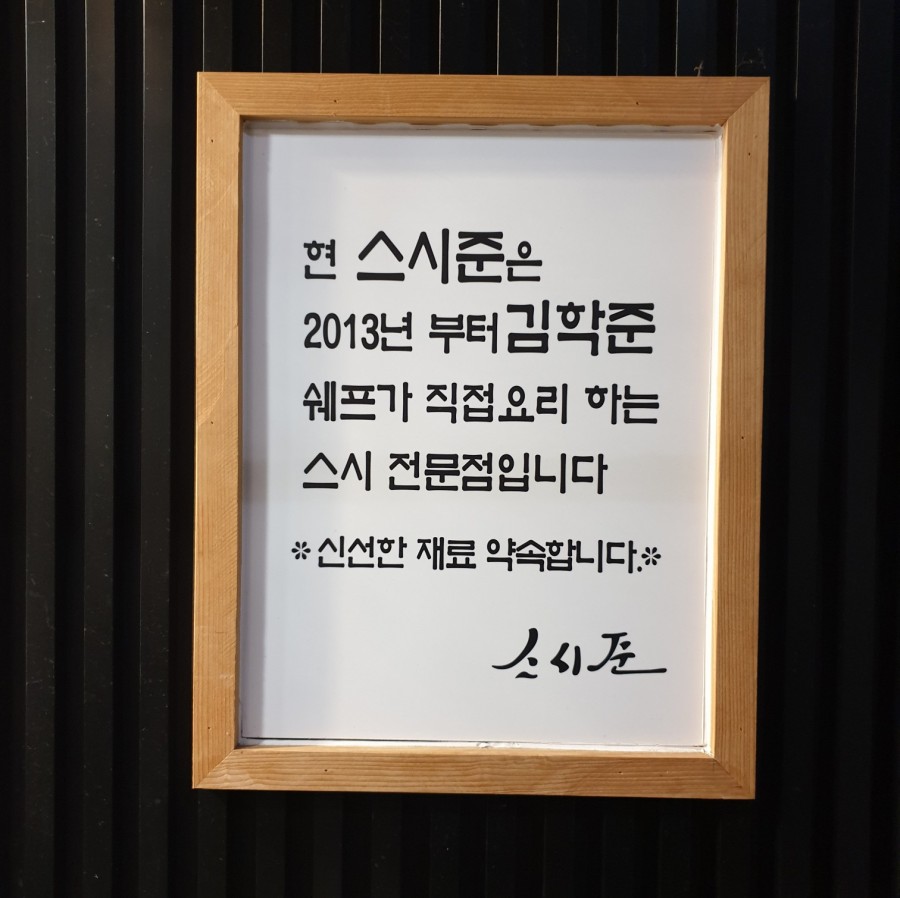 현 스시준은
2013년 부터 김학준
쉐프가 직접요리 하는
스시 전문점입니다
*신선한 재료 약속합니다.*
스시준